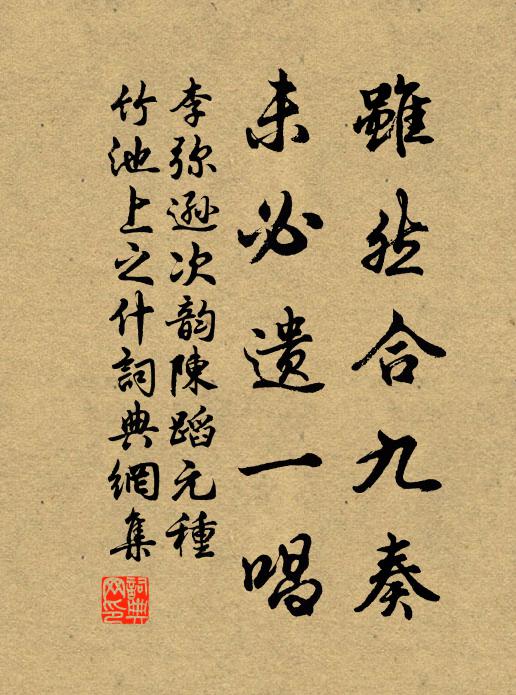 雖然合九奏
未必遺一唱
李弥遜次韵陳蹈元種
竹池上之什詞典網集
詞典网印